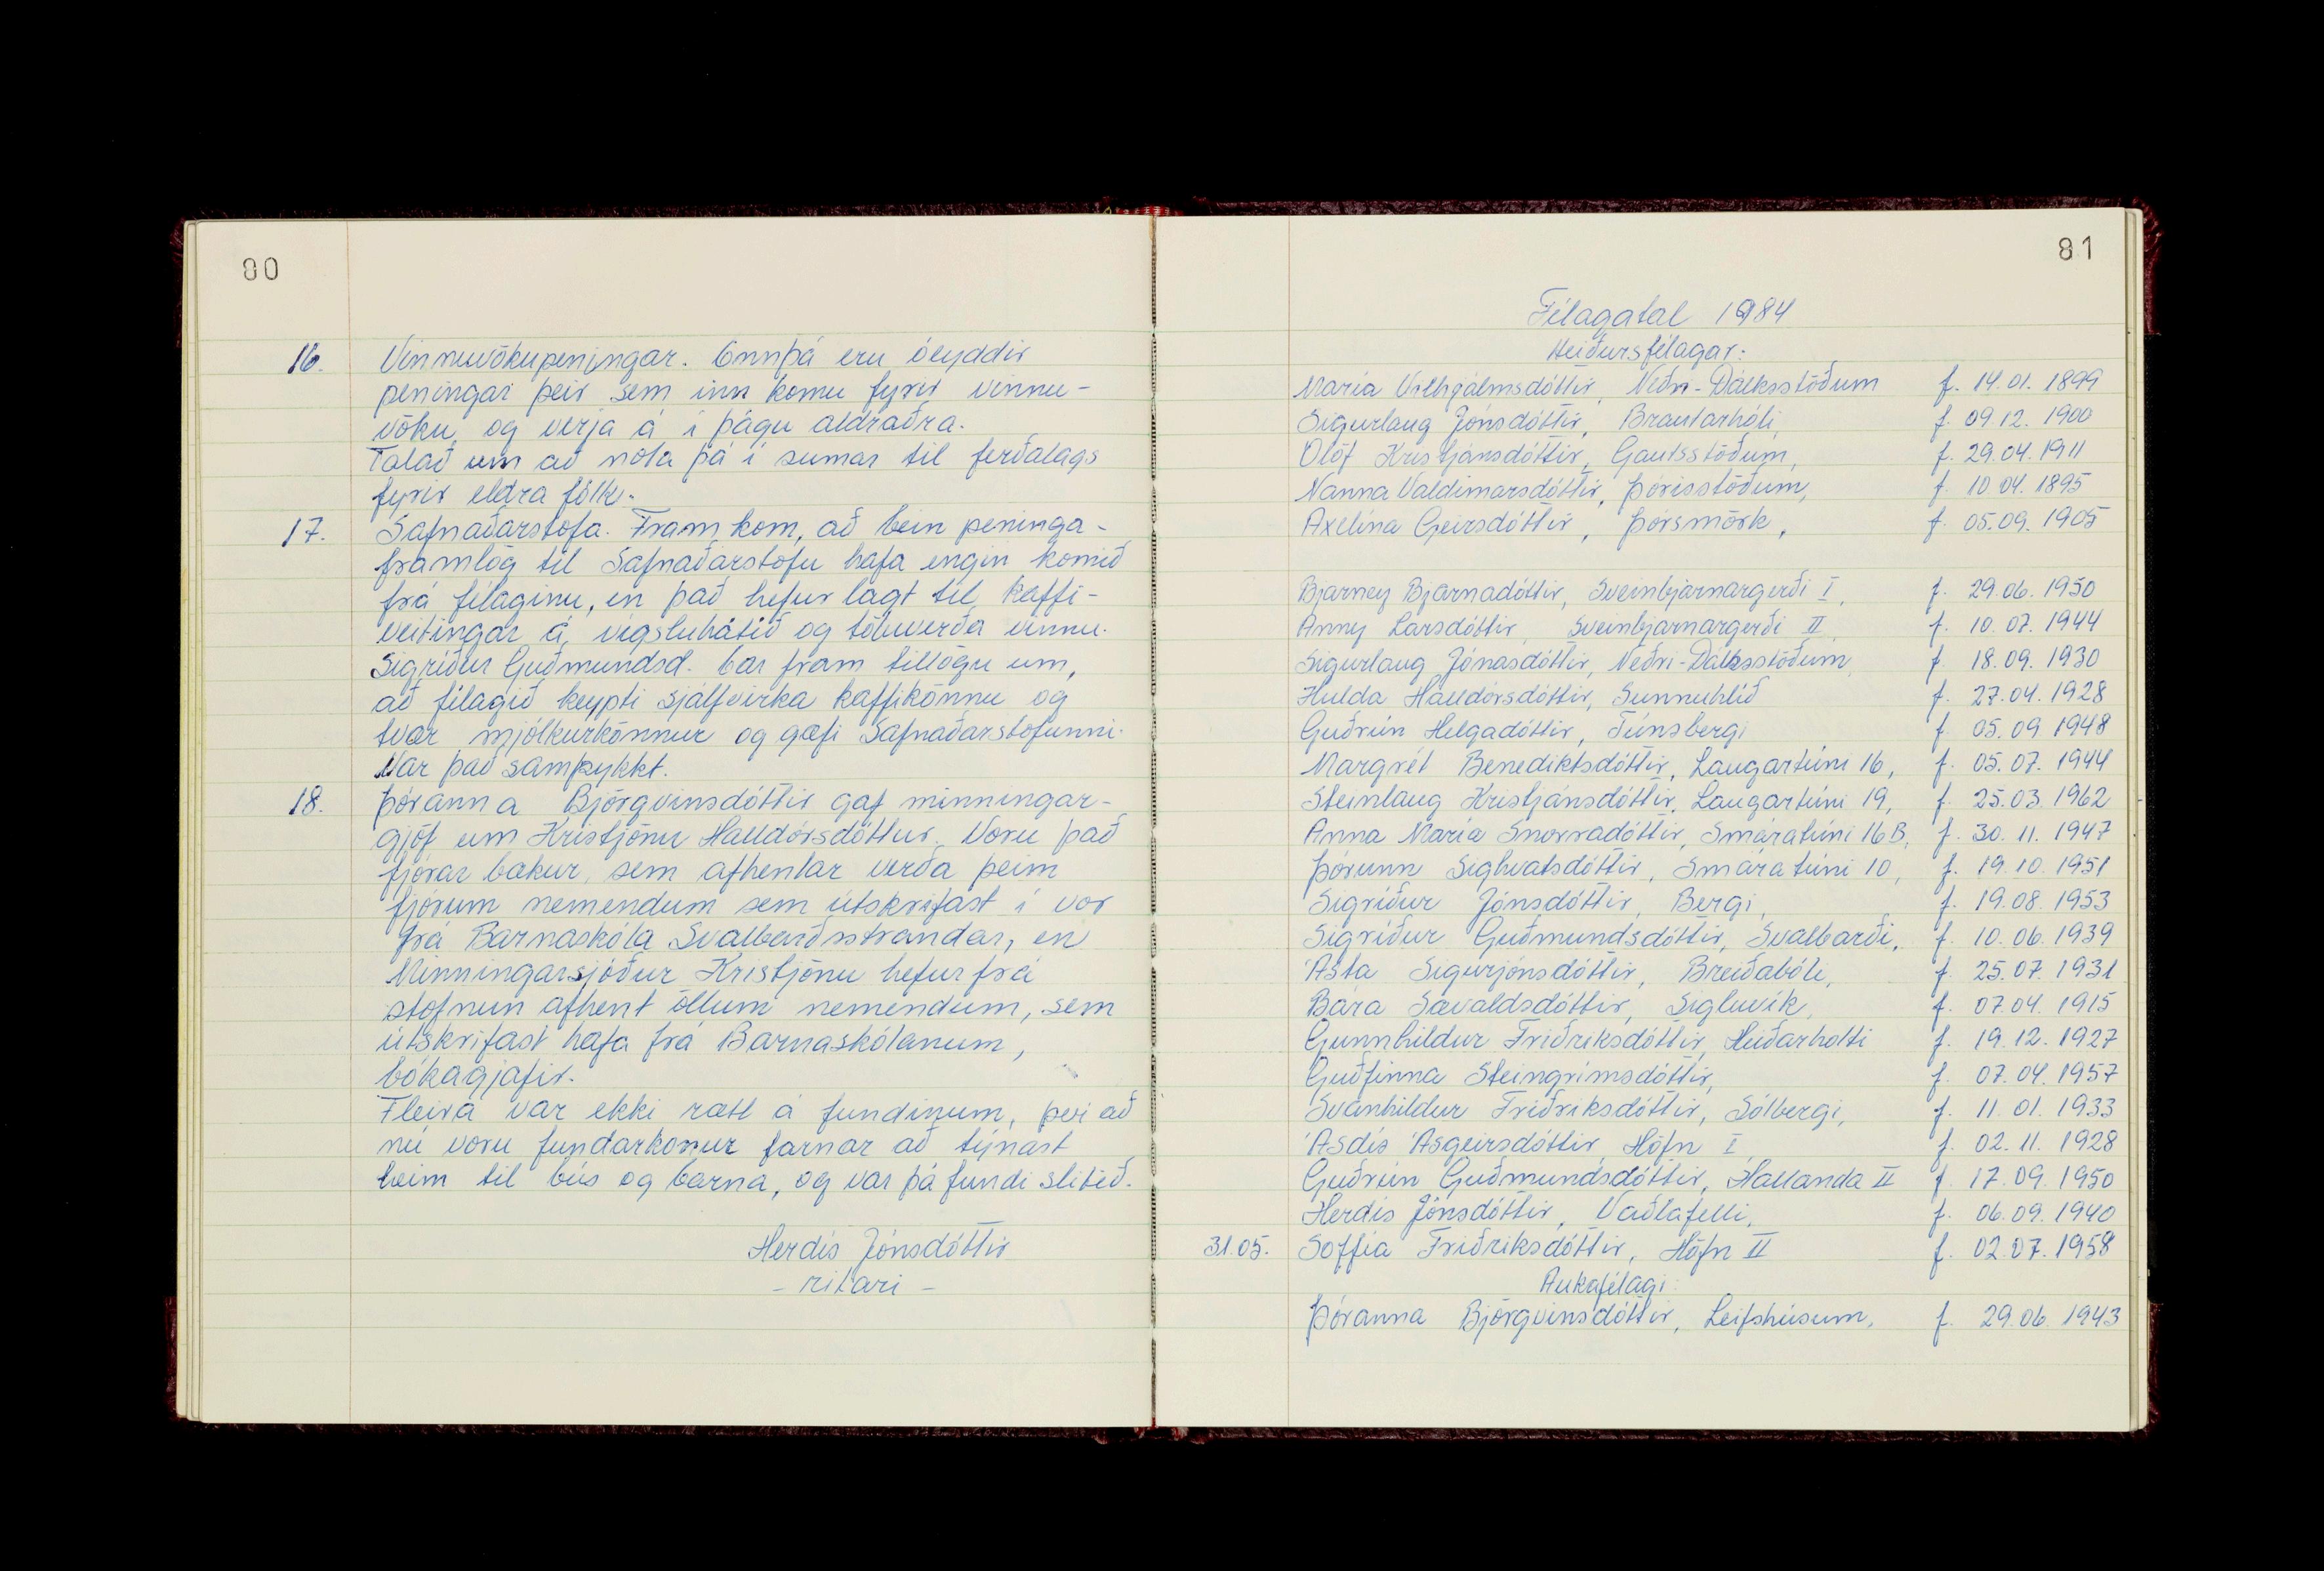 80
16. Vinnuvökupeningar. Ennþá eru óeyddir
peningar þeir sem inn komu fyrir vinnu-
vöku, og verja á í þágu aldraðra.
Talað um að nota þá í sumar til ferðalags
fyrir eldra fólk.
17. Safnaðarstofa. Fram kom, að bein peninga-
framlög til Safnaðarstofu hafa engin komið
frá félaginu, en það hefur lagt til kaffi-
veitingar á vígsluhátíð og töluverða vinnu.
Sigríður Guðmundsd. bar fram tillögu um,
að félagið keypti sjálfvirka kaffikönnu og
tvær mjólkurkönnur og gæfi Safnaðarstofunni.
Var það samþykkt.
18. Þóranna Björgvinsdóttir gaf minningar-
gjöf um Kristjönu Halldórsdóttur. Voru það
fjórar bækur, sem afhentar verða þeim
fjórum nemendum sem útskrifast í vor
frá Barnaskóla Svalbarðsstrandar, en
Minningarsjóður Kristjönu hefur frá
stofnun afhent öllum nemendum, sem
útskrifast hafa frá Barnaskólanum,
bókagjafir.
Fleira var ekki rætt á fundinum, því að
nú voru fundarkonur farnar að týnast
heim til bús og barna, og var þá fundi slitið.
Herdís Jónsdóttir
- ritari -
81
Félagatal 1984
Heiðursfélagar:
María Vilhjálmsdóttir, Neðri-Dálksstöðum f. 14.01.1899
Sigurlaug Jónsdóttir, Brautarhóli, f. 09.12.1900
Ólöf Kristjánsdóttir, Gautsstöðum, f. 29.04.1911
Nanna Valdimarsdóttir, Þórisstöðum, f. 10.04.1895
Axelína Geirsdóttir, Þórsmörk, f. 05.09.1905
Bjarney Bjarnadóttir, Sveinbjarnargerði I, f. 29.06.1950
Anny Larsdóttir, Sveinbjarnargerði II, f. 10.07.1944
Sigurlaug Jónasdóttir, Neðri-Dálksstöðum, f. 18.09.1930
Hulda Halldórsdóttir, Sunnuhlíð f. 27.04.1928
Guðrún Helgadóttir, Túnsbergi f. 05.09 1948
Margrét Benediktsdóttir, Laugartúni 16, f. 05.07.1944
Steinlaug Kristjánsdóttir, Laugartúni 19, f. 25.03.1962
Anna María Snorradóttir, Smáratúni 16B, f. 30.11.1947
Þórunn Sighvatsdóttir, Smáratúni 10, f. 19.10.1951
Sigríður Jónsdóttir, Bergi, f. 19.08.1953
Sigríður Guðmundsdóttir, Svalbarði, f. 10.06.1939
Ásta Sigurjónsdóttir, Breiðabóli, f. 25.07.1931
Bára Sævaldsdóttir, Sigluvík, f. 07.04.1915
Gunnhildur Friðriksdóttir, Heiðarholti f. 19.12.1927
Guðfinna Steingrímsdóttir, f. 07.04.1957
Svanhildur Friðriksdóttir, Sólbergi, f. 11.01.1933
Ásdís Ásgeirsdóttir, Höfn I, f. 02.11.1928
Guðrún Guðmundsdóttir, Hallanda II f. 17.09.1950
Herdís Jónsdóttir, Vaðlafelli, f. 06.09.1940
31.05. Soffía Friðriksdóttir, Höfn II f. 02.07.1958
Aukafélagi:
Þóranna Björgvinsdóttir, Leifshúsum, f. 29.06.1943